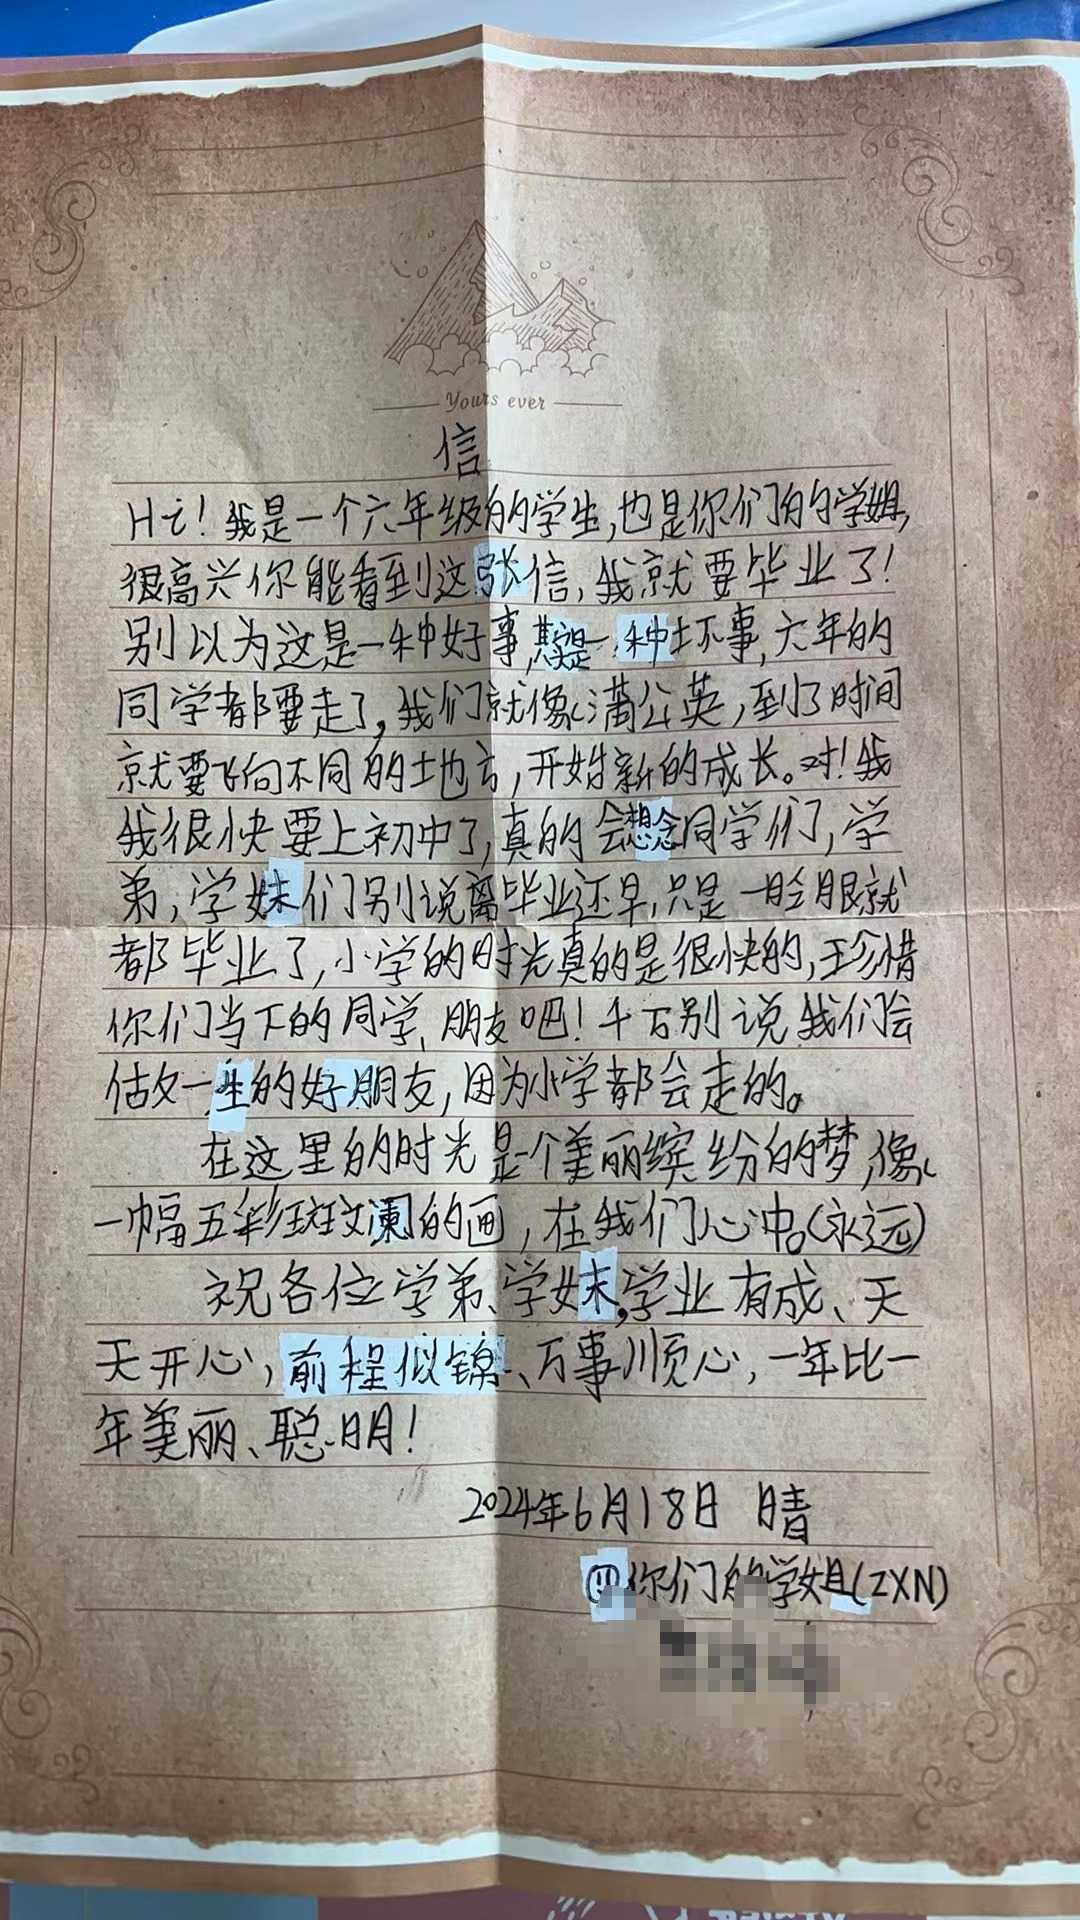 Yours ever
信
Hi！我是一个六年级的的学生，也是你们的的学姐，
很高兴你能看到这张信，我就要毕业了！
别以为这是一种好事，其实是一种坏事，六年的
同学都要走了，我们就像蒲公英，到了时间
就要飞向不同的土地方，开始新的成长。对！我
我很快要上初中了，真的会想念同学们，学
弟，学妹们别说离毕业还早，只是一眨眼就
都毕业了，小学的时光真的是很快的，珍惜
你们当下的同学，朋友吧！千万别说我们会
做一生的好朋友，因为小学都会走的。
在这里的时光是一个美丽缤纷的梦，像
一幅五彩斑斓的画，在我们心中。（永远）
祝各位学弟、学妹，学业有成、天
天开心，前程似锦、万事顺心，一年比一
年美丽、聪明！
2024年6月18日 晴
你们的学姐（ZXN）